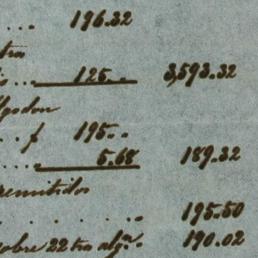 ... 196.32
tra
is ... 125.. 3,593.32
lgodon
.. f 195..
.... 5.68 189.32
remitidos
....... 195.50
obre 22 tra alg.ª. 190.02